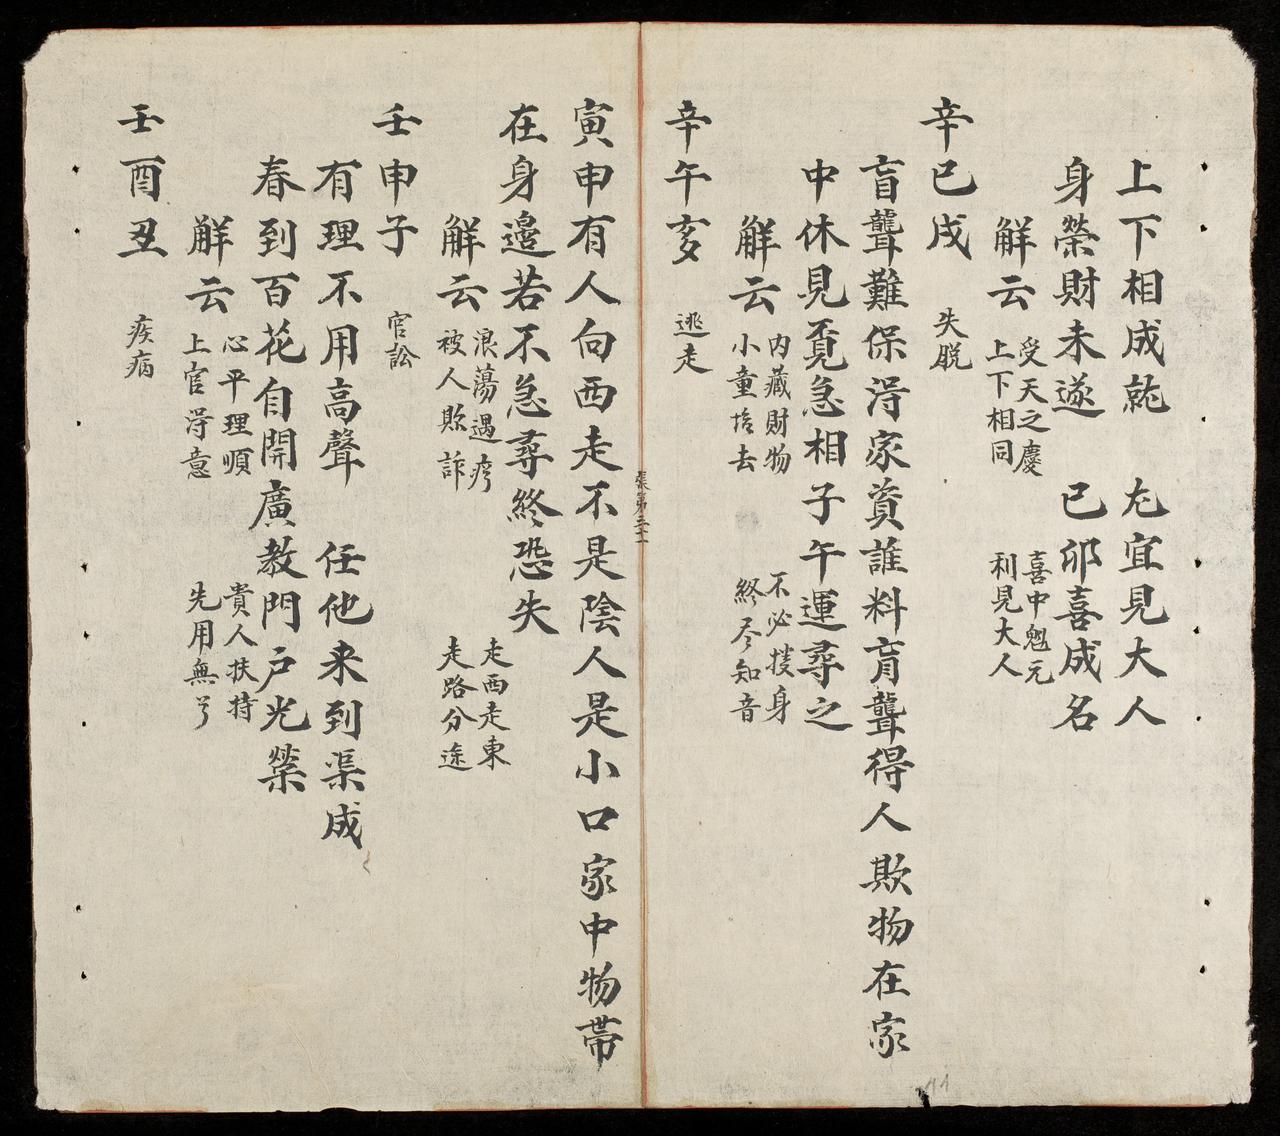 上下相成就　尤宜見大人
身榮財未遂　已卯喜成名
解云
受天之慶
上下相同
喜中魁元
利見大人
辛巳戌　失脫
盲聾難保淂家資誰料肓聾得人欺物在家
中休見覔急相子午運尋之
解云
內藏財物
小童拾去
不必搜身
終尽知音
辛午亥　逃走
張第三十一
寅申有人向西走不是陰人是小口家中物帶
在身邊若不急尋終恐失
解云
浪蕩遇
被人欺詐
走西走東
走路分途
壬申子　官訟
有理不用高聲　任他来到渠成
春到百花自開廣教門戶光榮
解云
心平理順
上官淂意
貴人扶持
先用無
壬酉丑　疾病